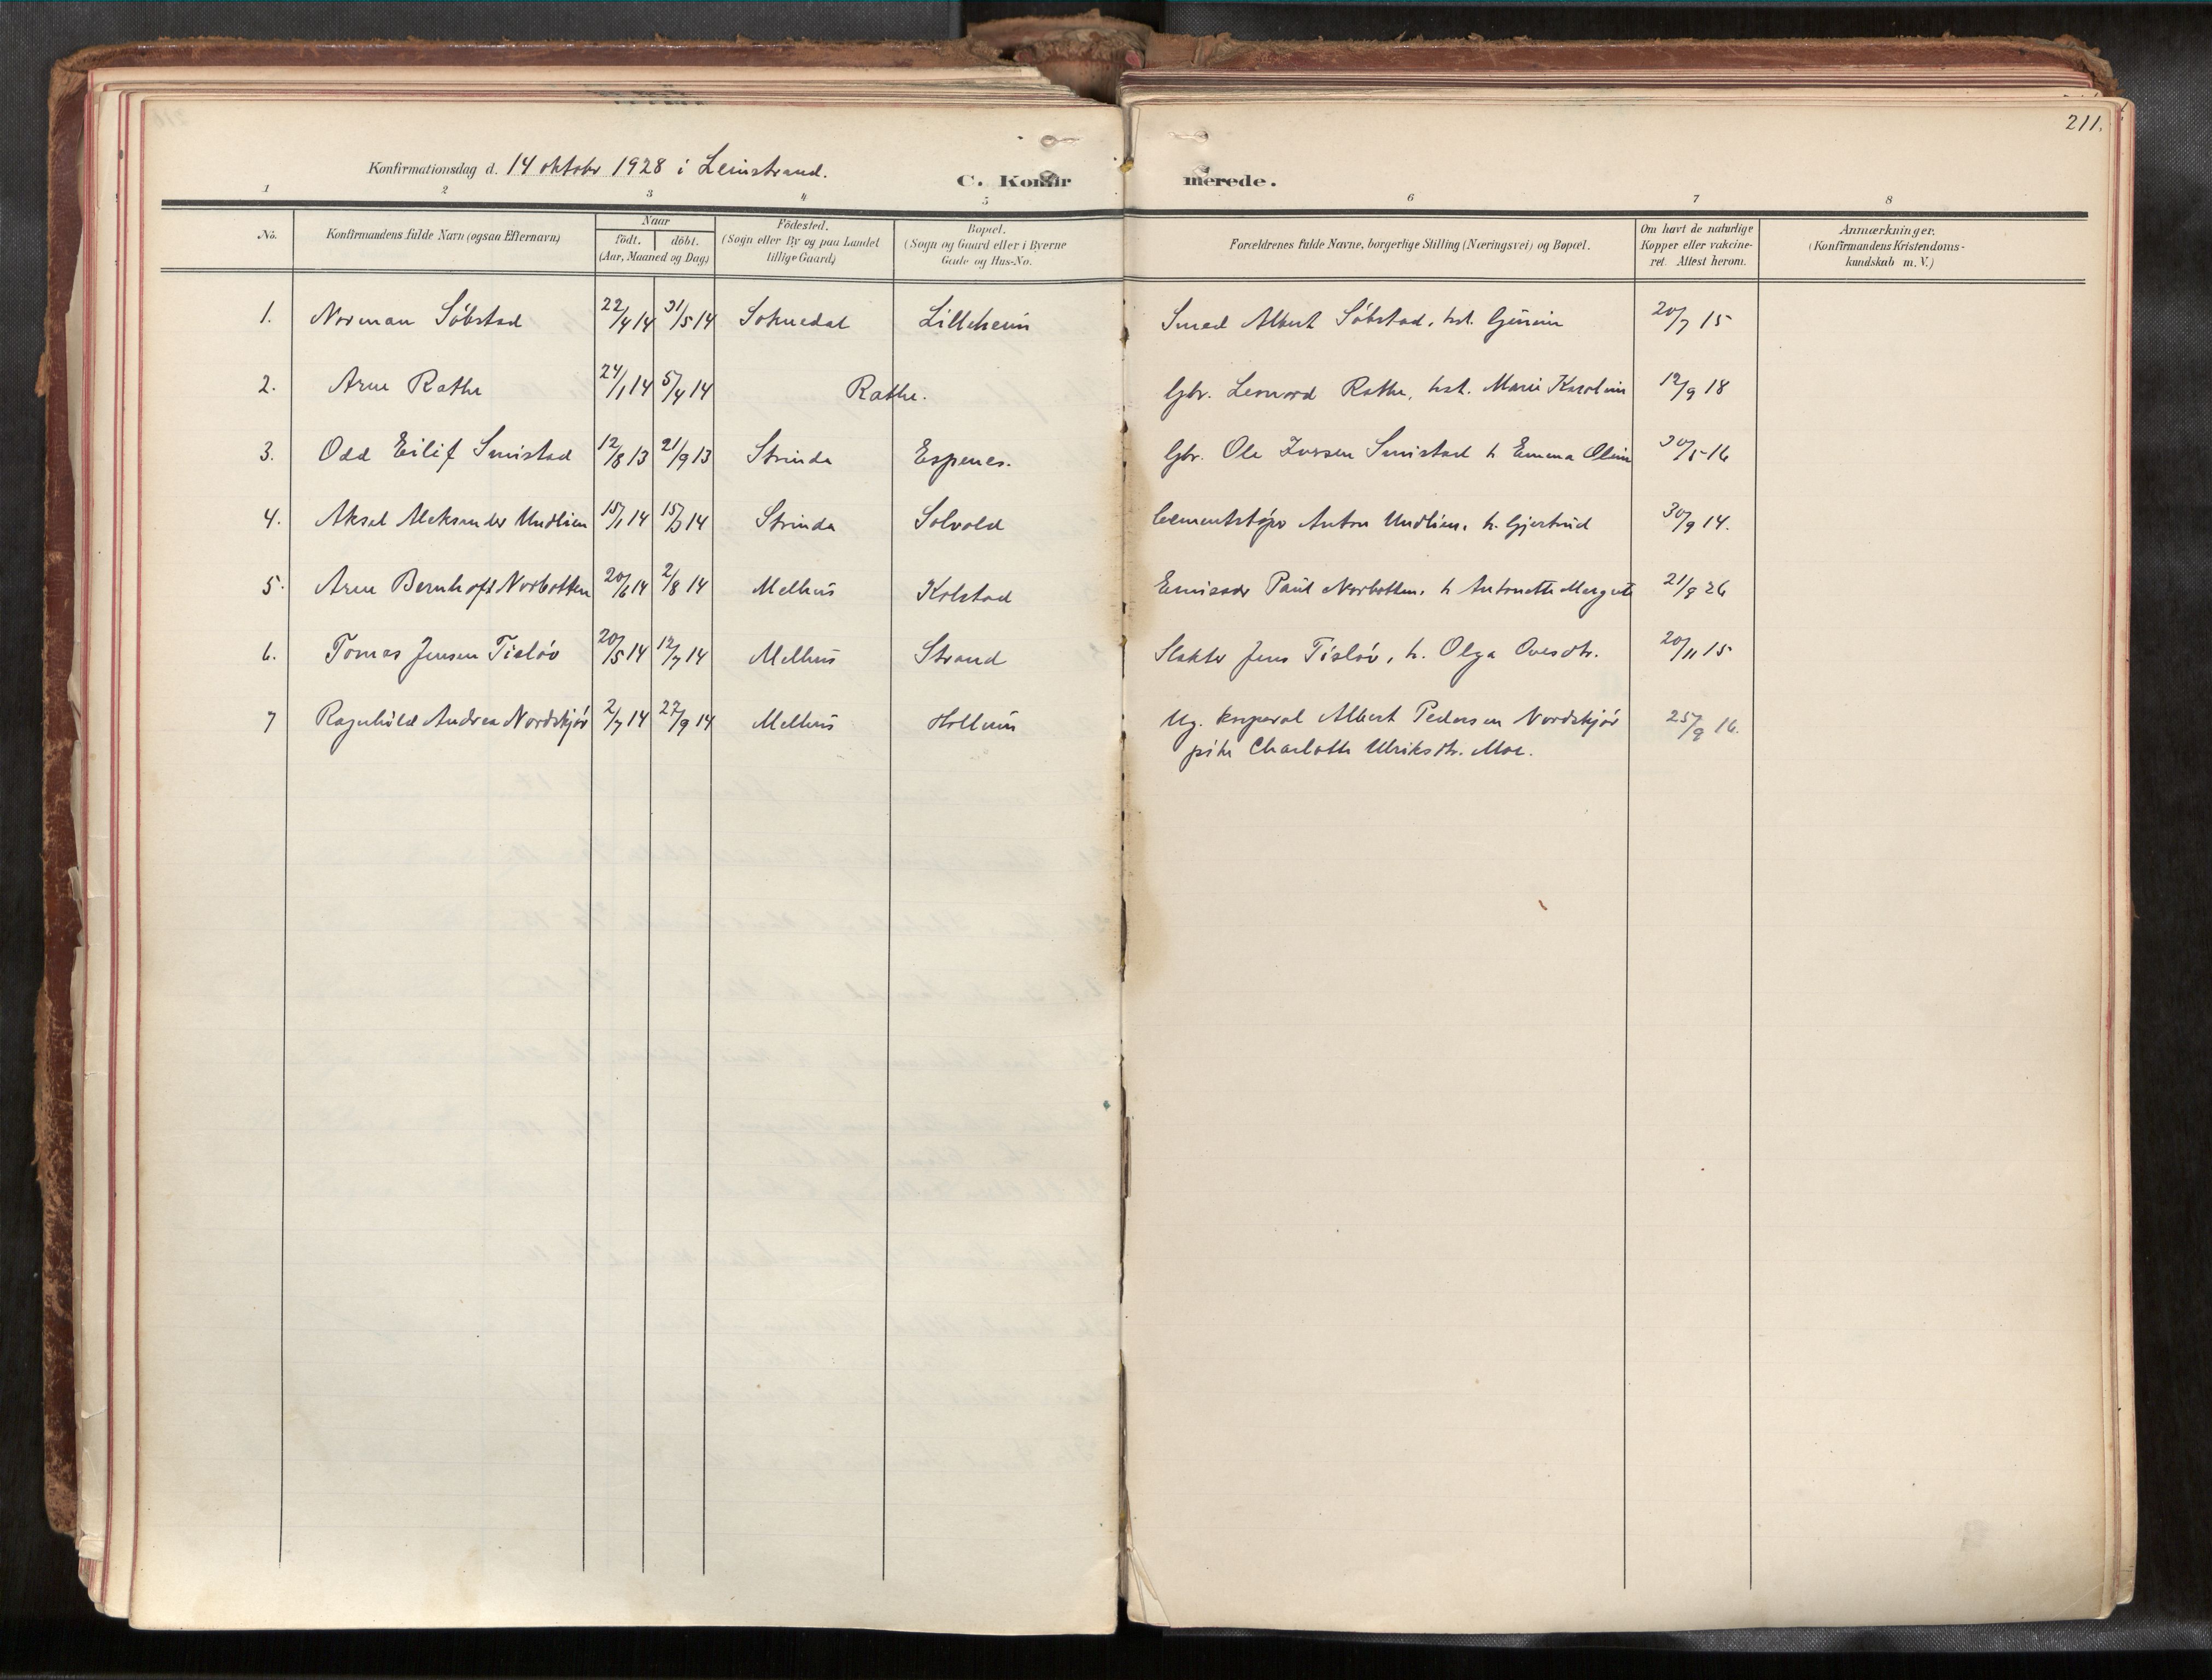 211.
Konfirmationsdag d. 14 oktobr 1928 i Leinstrand.
C. Konfirmerede.
1 2 3 4 5 6 7 8
No.
Konfirmandens fulde Navn (ogsaa Efternavn)
Naar
födt. döbt.
(Aar, Maaned og Dag)
Födested.
(Sogn eller By og paa Landet
tillige Gaard)
Bopæl.
(Sogn og Gaard eller i Byerne
Gade og Hus-No.
Forældrenes fulde Navne, borgerlige Stilling (Næringsvei) og Bopæl.
Om havt de naturlige
Kopper eller vakcine-
ret. Attest herom.
Anmærkninger.
(Konfirmandens Kristendoms-
kundskab m. V.)
1. Norman Söbstad 22/4 14 31/5 14 Soknedal Lilleheim Smed Albert Söbstad, hst. 20/7 15
2. Arne Rathe 24/1 14 5/4 14 Rathe. Gbr. Leonard Rathe, hst. Marie Karoline 12/9 18
3. Odd Eilif Smistad 12/8 13 21/9 13 Strinda Espenes. Gbr. Ole Iversen Smistad h Emma Oline 30/5 16
4. Aksel Aleksander Undlien 15/1 14 15/3 14 Strinda Solvold Cementstöper Anton Undlien, h. Gjertrud 30/9 14.
5. Arne Bernhoft Norbotten 20/6 14 2/8 14 Melhus Kolstad Emissær Paul Norbotten, h Antonette Margrete 21/8 26
6. Tomas Jensen Tislöv 20/5 14 12/7 14 Melhus Strand Slakter Jens Tislöv, h. Olga Ovesdtr. 20/11 15
7 Ragnhild Andrea Nordskjör 2/7 14 27/9 14 Melhus Ug. korporal Albert Pedersen Nordskjör 25/9 16.
pike Charlotte Ulriksdtr. Moe.